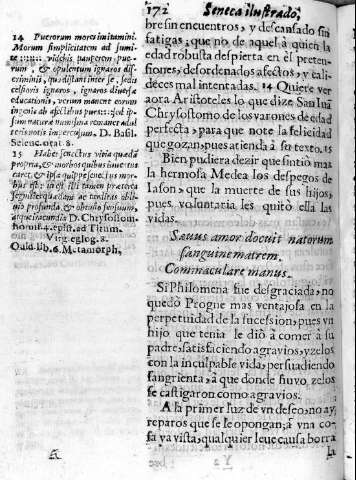 172 Seneca ilustrado,
14 Puerorum mores imitamini.
Morum simplicitatem ad sumi
te :::::: videtis pauperem pue-
rum, & opulentum ignaros dis
criminis, qui distant inter se, sedis
celsioris ignaros, ignaros diuersæ
educationis, verum manent eorum
ingenia ab affectibus pura::::: quod ip-
sum naturæ nunc pura remanet adul
teris notis impercusum. D. Basil.
Seleuc. orat. 8.
15 Habet senectus vitia quædā
propria, & morbos quibus iuuentus
caret, & ipsa quippe senectus mor-
bus est: inest illi tamen præterea
segnities quædam ac tarditas obliui-
gio profunda, & obtusio sensuum,
atque iracundia. D. Chrysostom.
homil. 4. epist. ad Titum.
Virg. eglog. 8.
Ouid. lib. 6. Metamorph,
bresin encuentros, y descansado sin
fatigas, que no de aquel à quien la
edad robusta despierta en él preten-
siones, desordenados afectos, y cali-
dèces mal intentadas. 14 Quiere ver
aora Aristoteles lo que dize San Iuã
Chrysostomo de los varones de edad
perfecta, para que note la felicidad
que gozan, pues atienda à su texto. 15
Bien pudiera dezir que sintiò mas
la hermosa Medea los despegos de
Iason, que la muerte de sus hijos,
pues voluntaria les quitò ella las
vidas.
Sæuus amor docuit natorum
sanguine matrem.
Commaculare manus.
Si Philomena fue desgraciada, no
quedò Progne mas ventajosa en la
perpetuidad de la sucession, pues vn
hijo que tenia le diò à comer à su
padre, satisfaciendo agravios, y zelos
con la inculpable vida, persuadiendo
sangrienta, à que donde huvo zelos
se castigaron como agravios.
A la primer luz de vn deseo, no ay
reparos que se le opongan; à vna co-
sa ya vista, qualquier leue causa borra
la